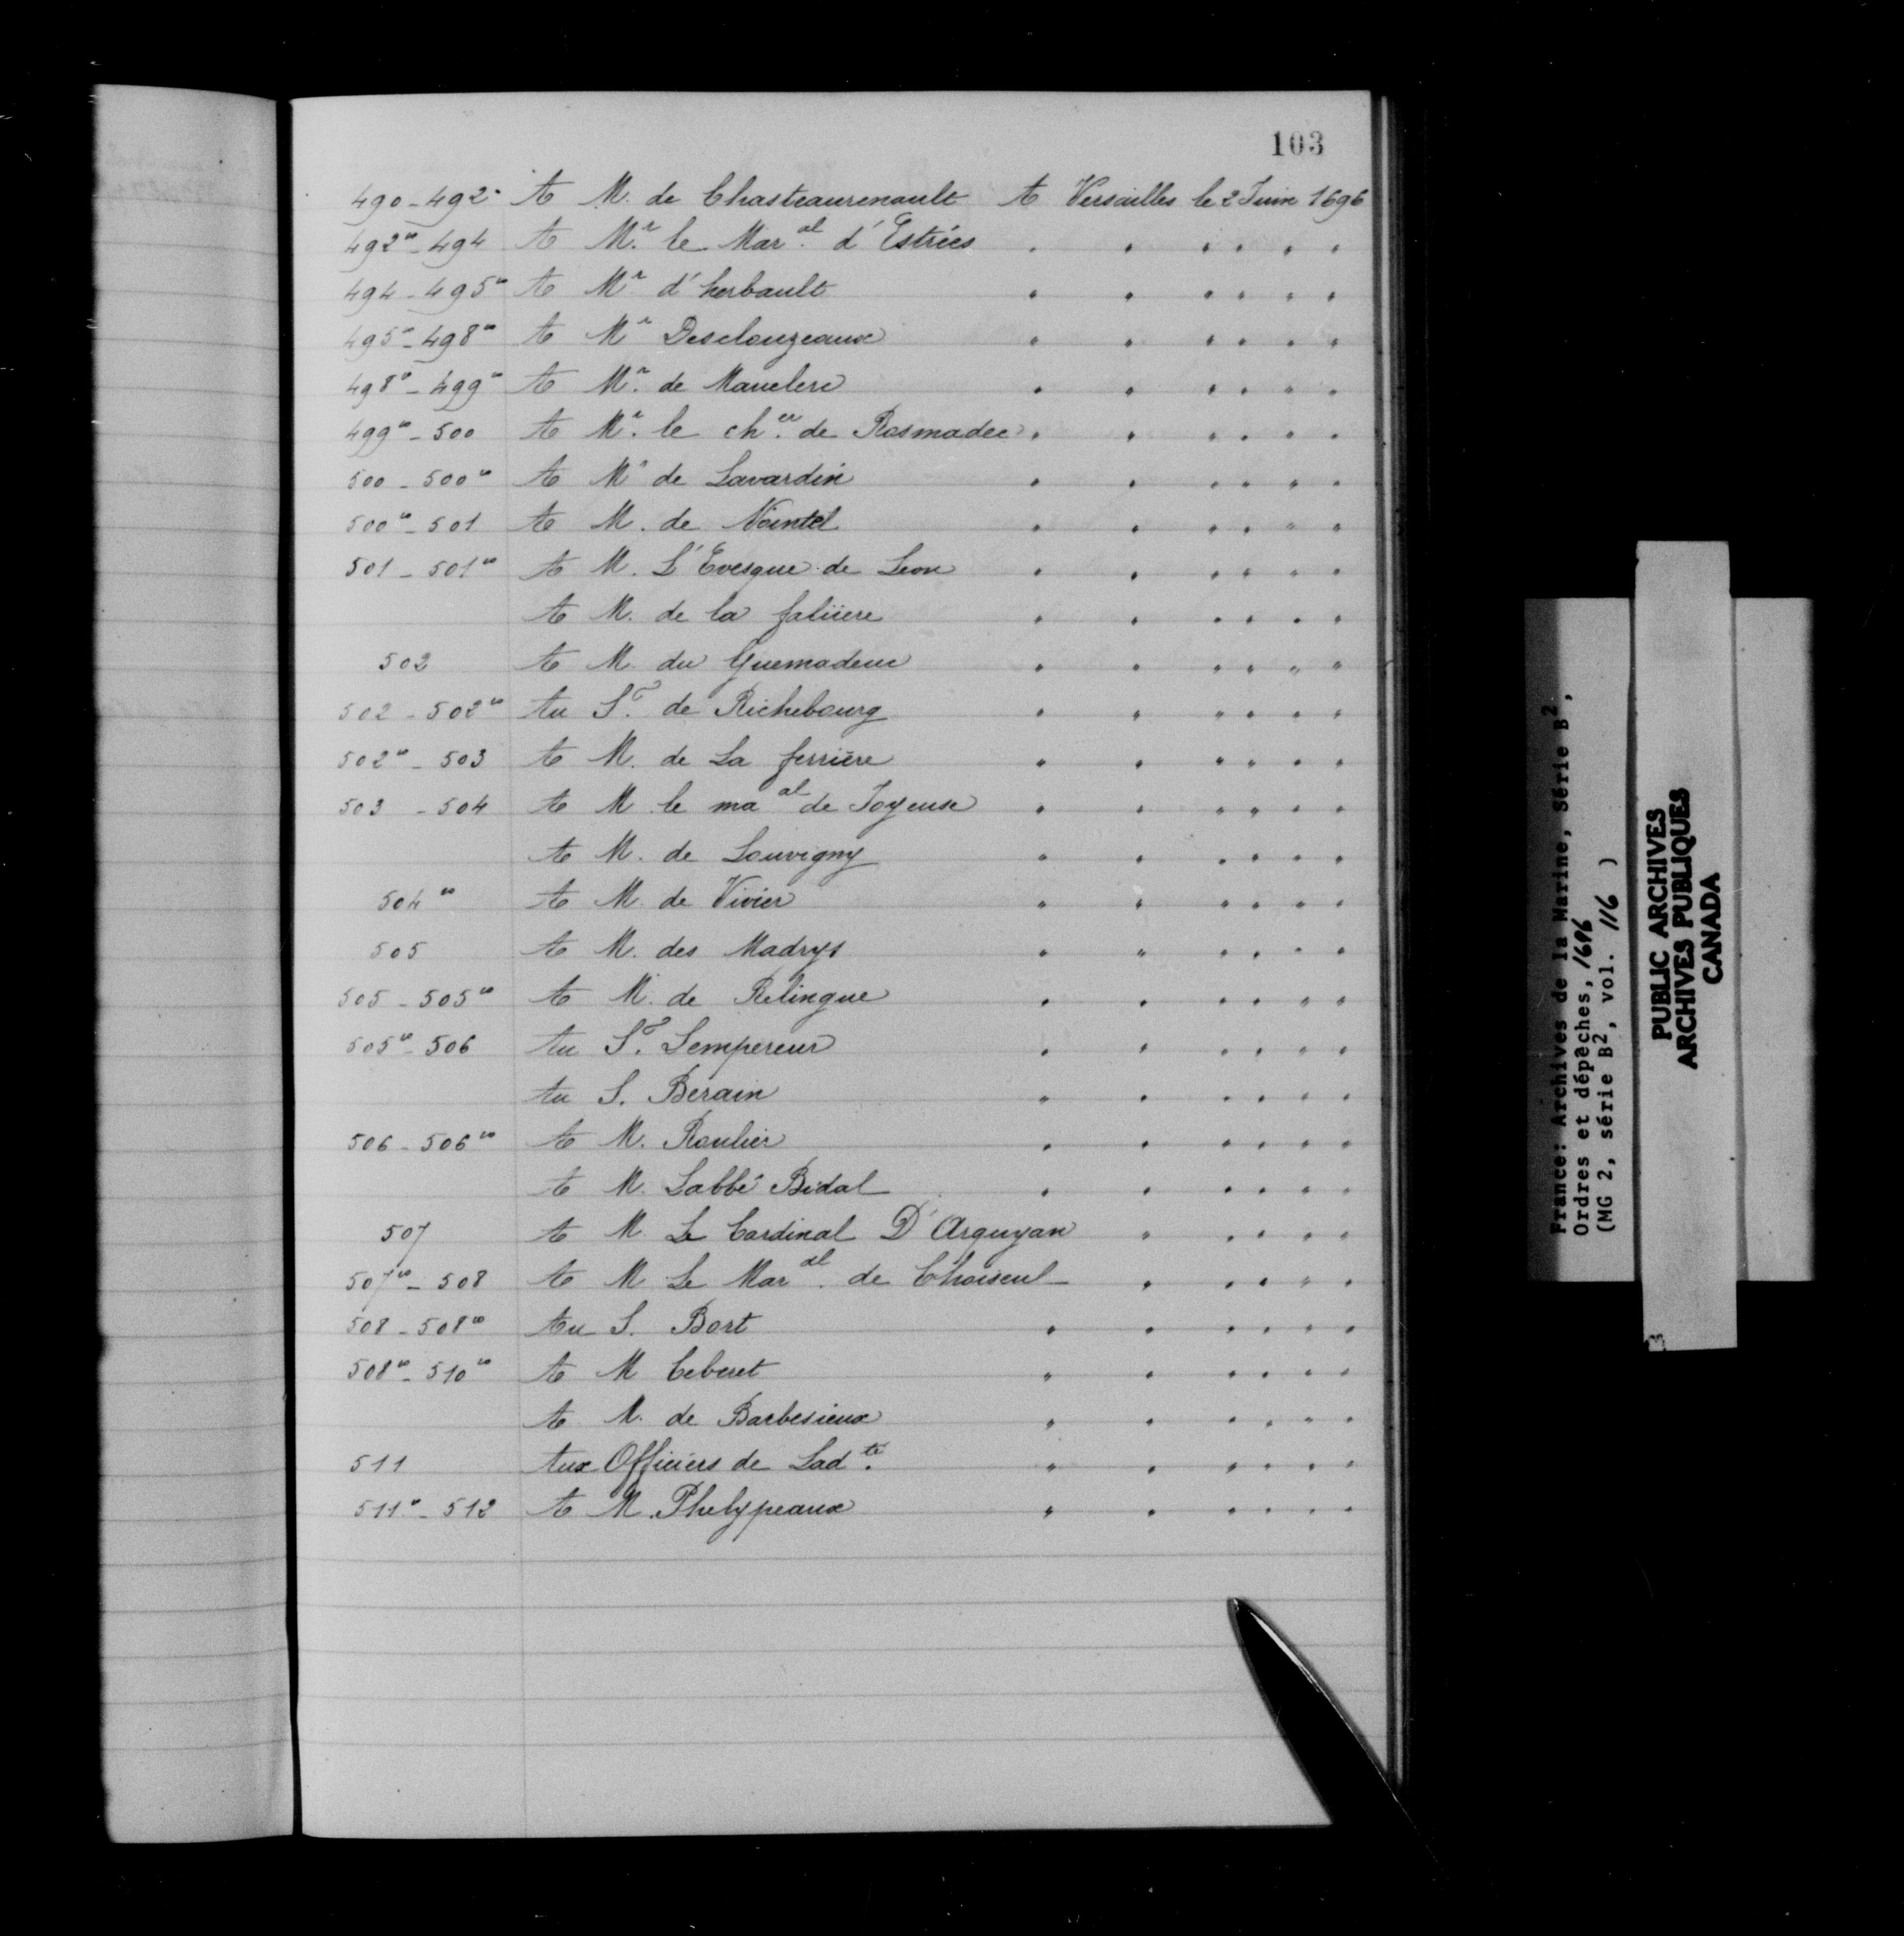 103
490-492º A M. de Chasteaurenault A Versailles le 2 Juin 1696
492vº-494 A Mr. le Maral. d'Estrées " " " " " "
494-495vº A Mr. d'herbault " " " " " "
495vº-498vº A Mr Desclouzeaux " " " " " "
498º-499vº A Mr. de Mauclerc " " " " " "
499vº-500 A Mr. le cher. de Rosmadec " " " " " "
500-500vº A Mr de Lavardin " " " " " "
500vº-501 A M. de Nointel " " " " " "
501-501vº A M. L'Evesque de Leon " " " " " "
A M. de la faliiere " " " " " "
502 A M. du Guemadeuc " " " " " "
502-502vº Au Sr. de Richebourg " " " " " "
502vº-503 A M. de La ferriere " " " " " "
503-504 A M le maal de Joyeuse " " " " " "
A M. de Louvigny " " " " " "
504vº A M. de Vivier " " " " " "
505 A M. des Madrys " " " " " "
505-505vº A M. de Relingue " " " " " "
505vº-506 Au Sr. Lempereur " " " " " "
Au S. Berain " " " " " "
506-506vº A M. Roulier " " " " " "
A M. Labbé Bidal " " " " " "
507 A M. Le Cardinal D'Arquyan " " " " "
507vº-508 A M Le Maral. de Choiseul " " " " "
508-508vº Au S. Bort " " " " " "
508vº-510vº A M Ceberet " " " " " "
A M. de Barbesieux " " " " " "
511 Aux Officiers de Ladte. " " " " " "
511vº-512 A M. Phelypeaux " " " " " "
France: Archives de la Marine, Série B2,
Ordres et dépêches, 1696
(MG 2, série B2, vol. 116 )
PUBLIC ARCHIVES
ARCHIVES PUBLIQUES
CANADA